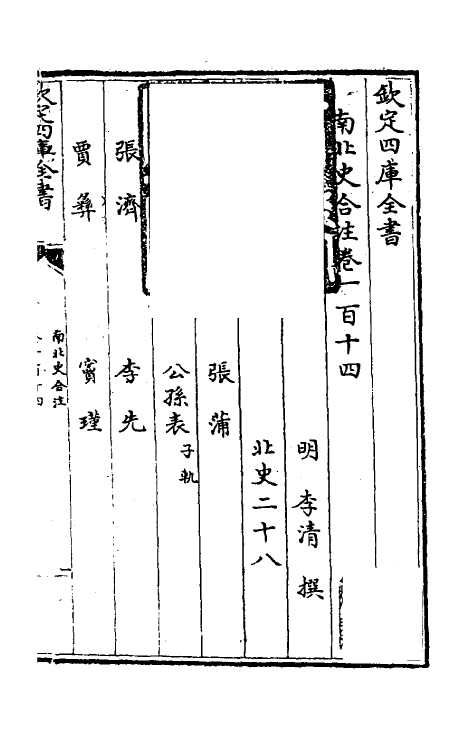 欽定四庫全書
南北史合注卷一百十四
明 李清 撰
北史二十八
張蒲
公孫表子軌
張濟
李先
賈彝
竇瑾
欽定四庫全書
南北史合注